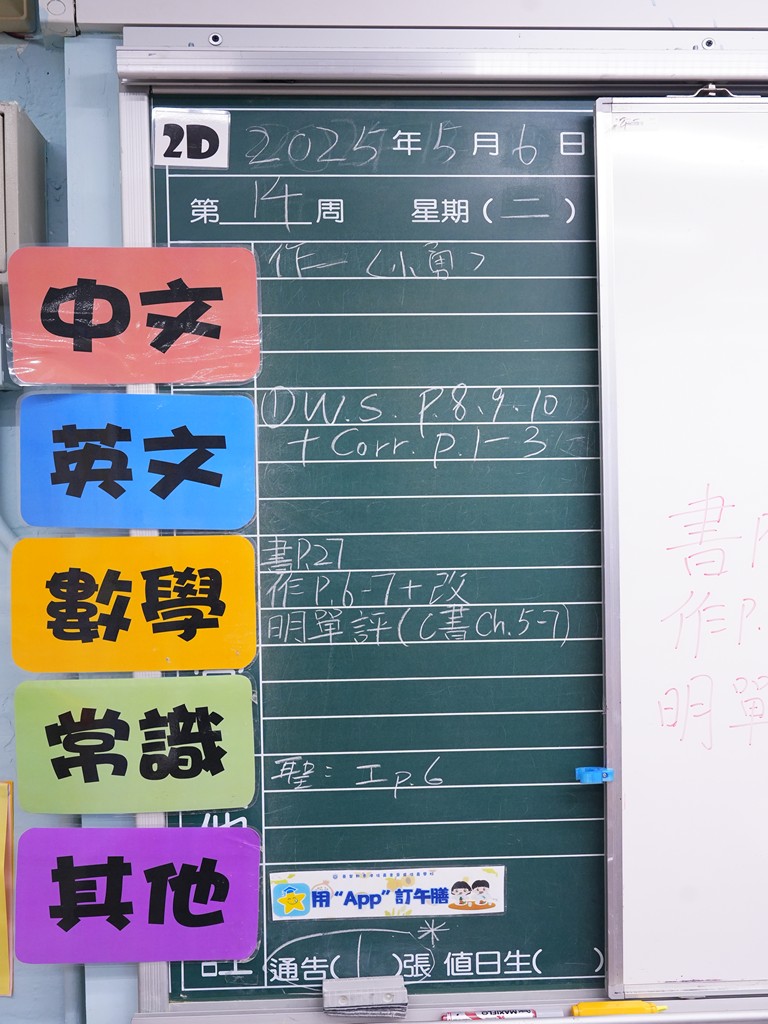 2D 2025年5月6日
第14周 星期(二)
中文
作一〈小勇〉
英文
①W.S. P.8、9、10
+ Corr. p.1-3
數學
書P.27
作P.6-7+改
明單評(C書Ch.5-7)
常識
聖: 工p.6
其他
用“App”訂午膳
通告(1)張 值日生( )
書P
作P.
明單
MAXIFLO